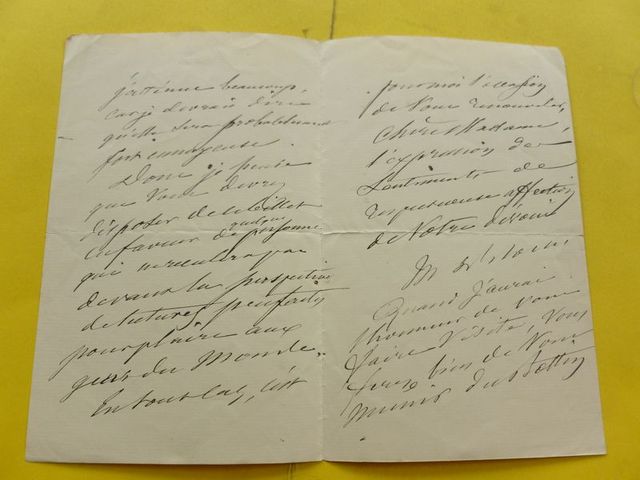 j'atténue beaucoup,
car je devrais dire
qu'elle sera probablement
fort ennuyeuse.
Donc je pense
que Vous devez
disposer de ce billet
en faveur de quelque personne
qui ne recule pas
devant la perspective
de
pour plaire aux
gens du Monde.
En tout cas, c'est
pour moi l'occasion
de Vous renouveler,
Chère Madame,
l'expression des
Sentiments de
respectueuse affection
de Votre dévoué
M
Quand j'aurai
l'honneur de vous
faire visite, Vous
ferez bien de Vous
munir du Bottin